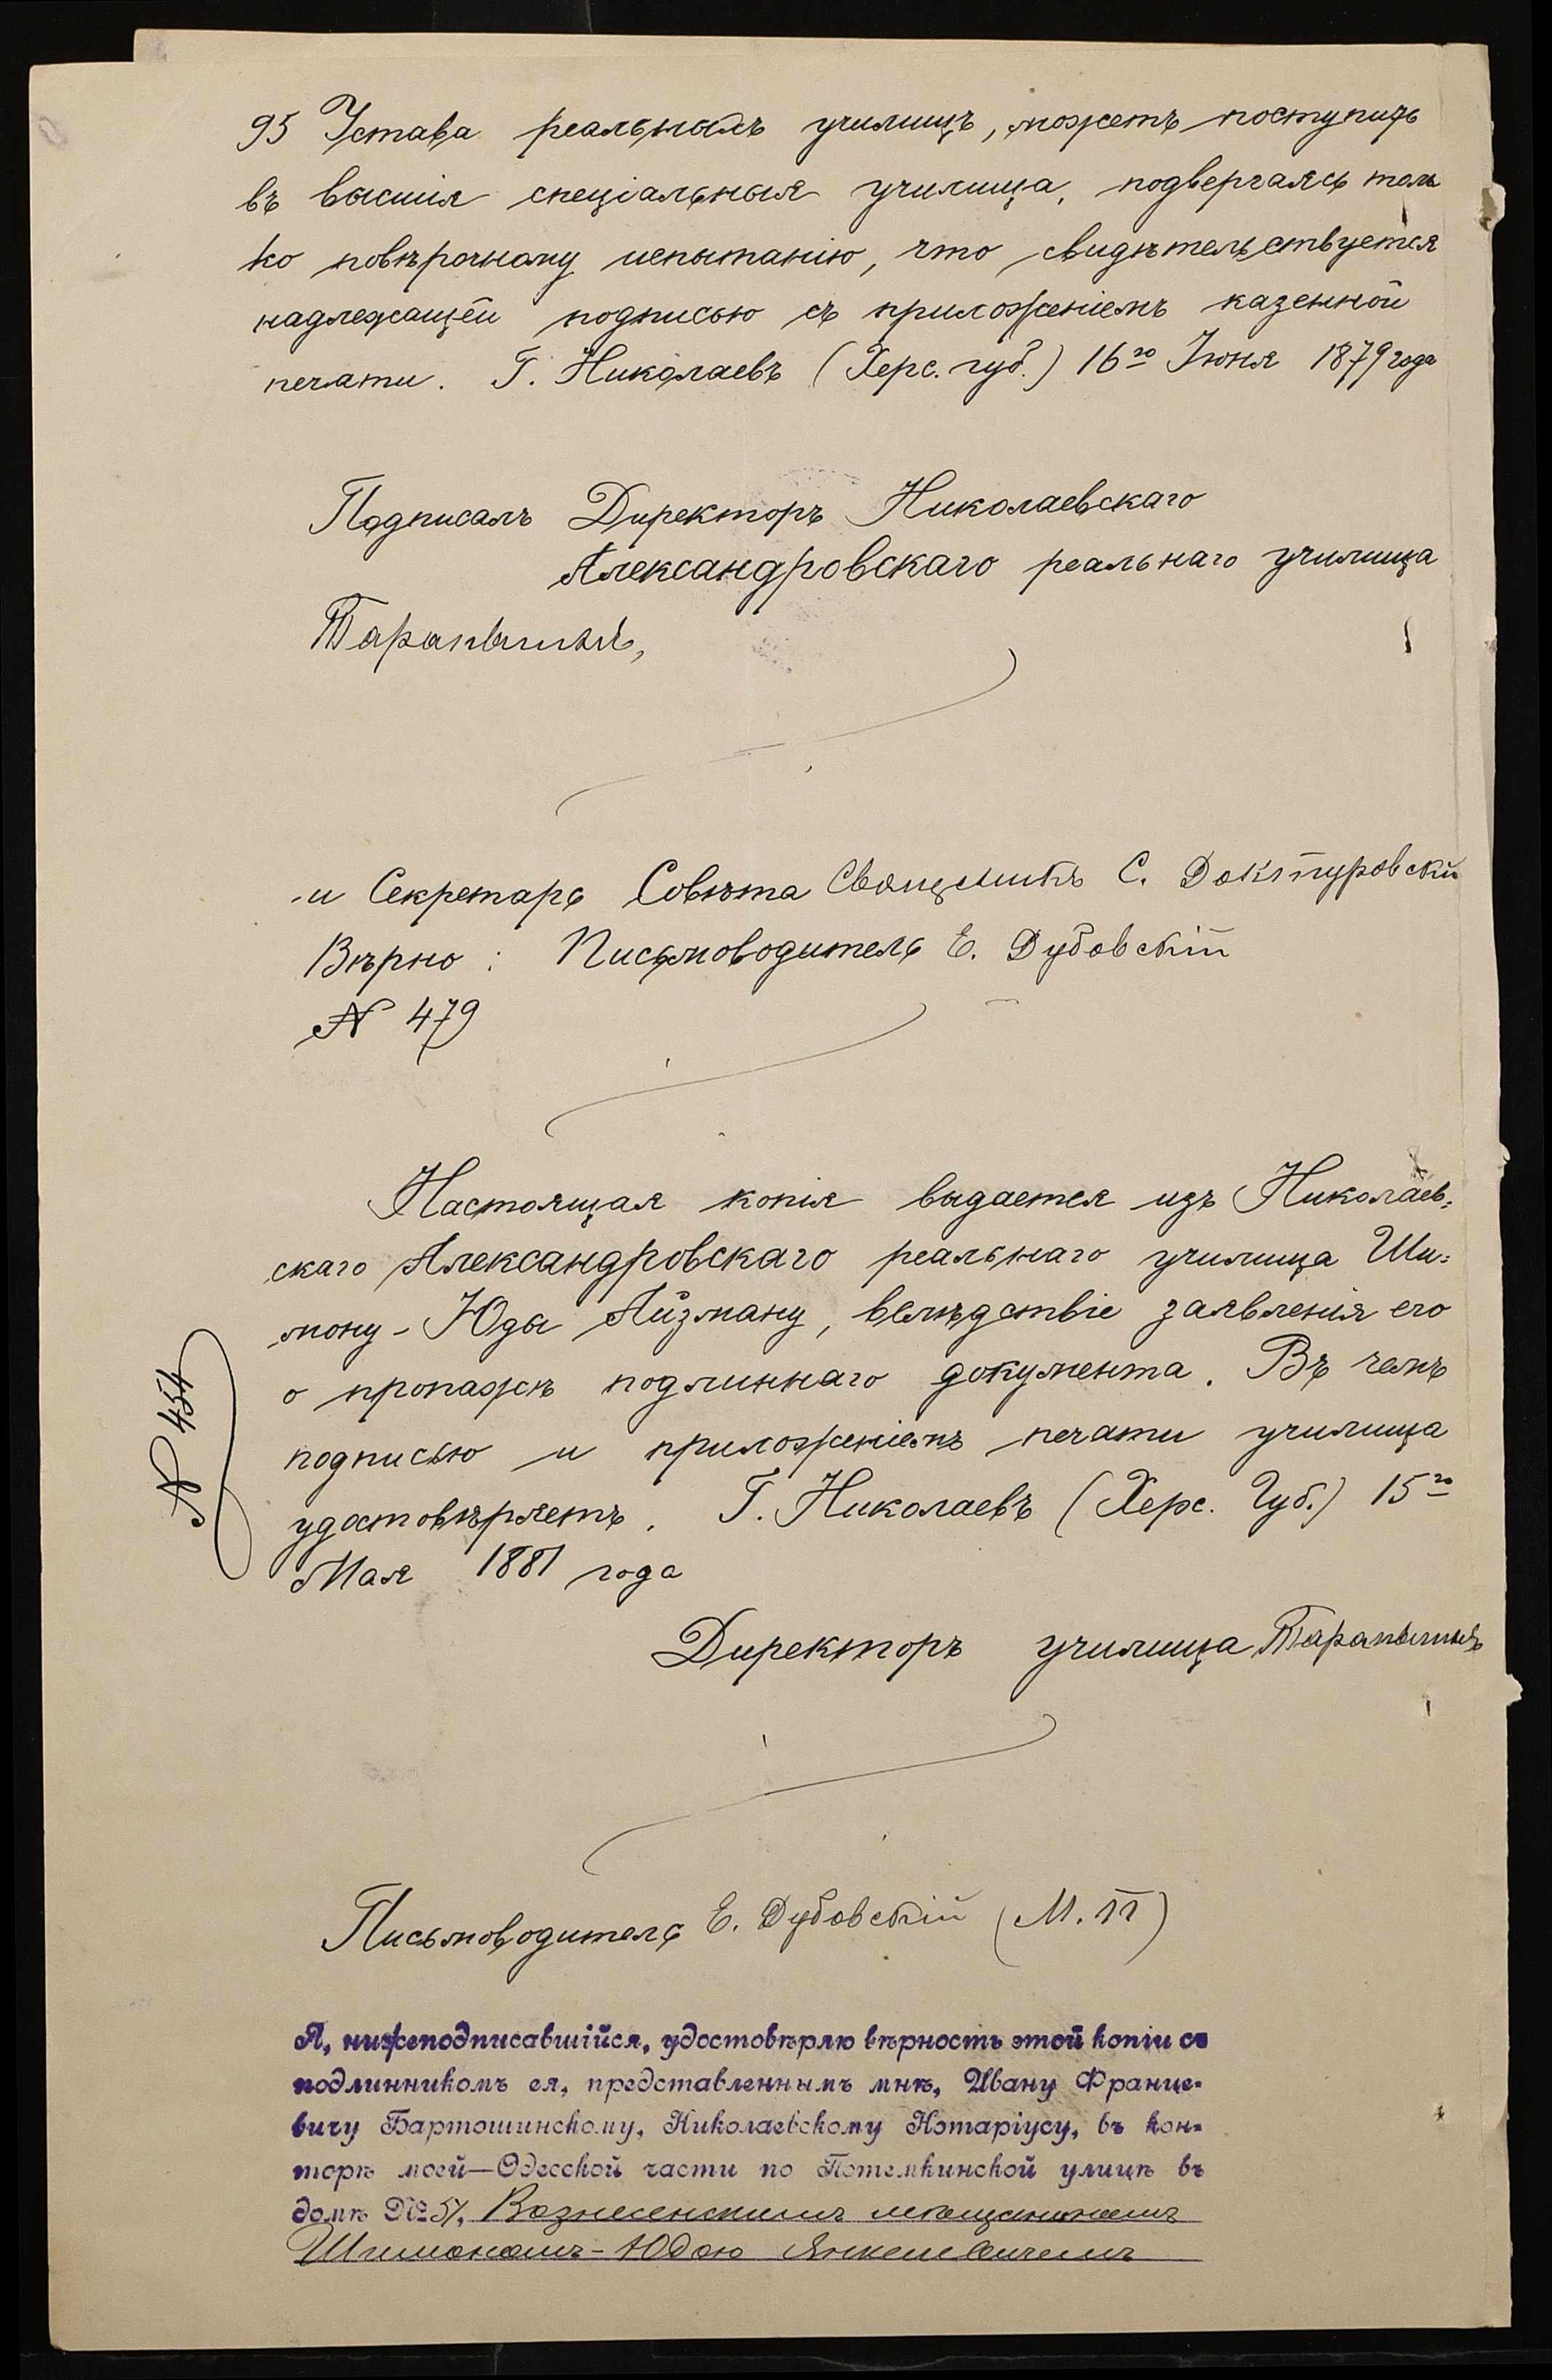 95 Устава реальныхъ училищъ, можетъ поступить
въ высшія спеціальныя училища, подвергаясь толь
ко повѣрочному испытанію, что свидѣтельствуется
надлежащей подписью съ приложеніемъ казенной
печати. Г. Николаевъ (Херс. губ.) 16го Іюня 1879 года
Подписалъ Директоръ Николаевскаго
Александровскаго реальнаго училища
Тарапыгинъ,
и Секретарь Совѣта Священникъ С. Доктуровскій
Вѣрно: Письмоводитель Е. Дубовскій
№ 479
Настоящая копія выдается изъ Николаев=
скаго Александровскаго реальнаго училища Ши=
мону-Юды Айзману, вслѣдствіе заявленія его
о пропажѣ подлиннаго документа. Въ чемъ
подписью и приложеніемъ печати училища
удостовѣряетъ. Г. Николаевъ (Херс. Губ.) 15го
Мая 1881 года
№ 454
Директоръ училища Тарапыгинъ
Письмоводитель Е. Дубовскій (М. П)
Я, нижеподписавшійся, удостовѣряю вѣрность этой копіи съ
подлинникомъ ея, представленнымъ мнѣ, Ивану Франце-
вичу Бартошинскому, Николаевскому Нотаріусу, въ кон-
торѣ моей—Одесской части по Потемкинской улицѣ въ
домѣ № 51, Вознесенскимъ мѣщаниномъ
Шимономъ-Юдою Янкелевичемъ